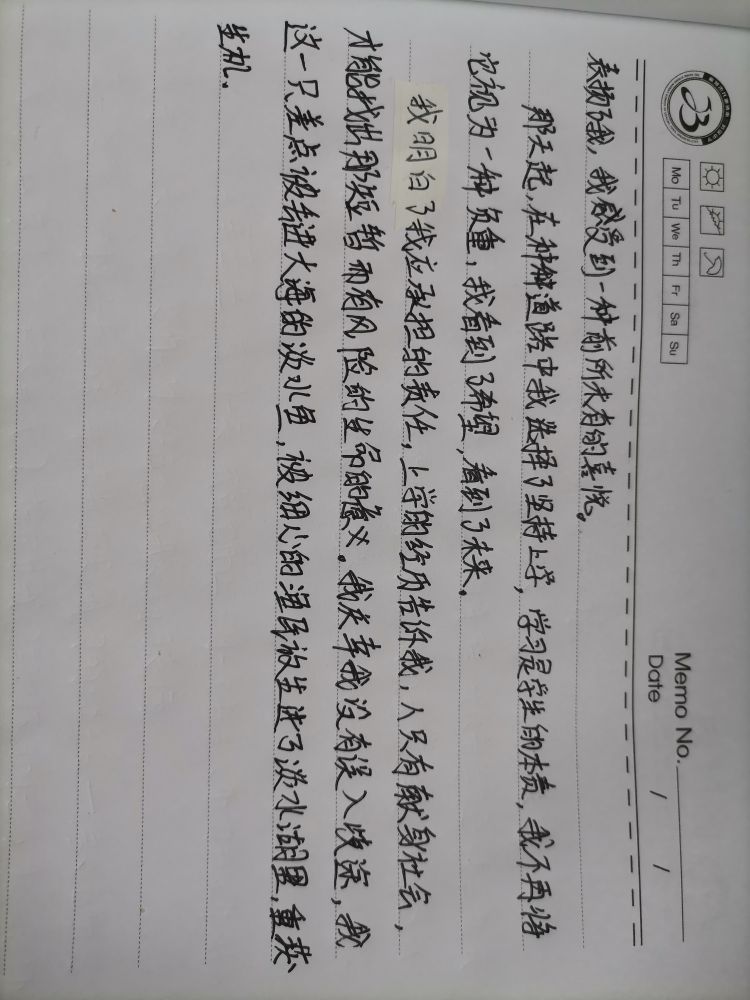 Memo No.
Date / /
Mo Tu We Th Fr Sa Su
表扬了我,我感受到一种前所未有的喜悦。
那天起,在种种道路中我选择了坚持上学,学习是学生的本责,我不再将
它视为一种负重,我看到了希望,看到了未来。
我明白了我应承担的责任,上学的经历告诉我,人只有献身社会,
才能找出那短暂而有风险的生命的意义。我庆幸我没有误入歧途,我
这一只差点被丢进大海的淡水鱼,被细心的渔民放生进了淡水湖里,重获
生机.